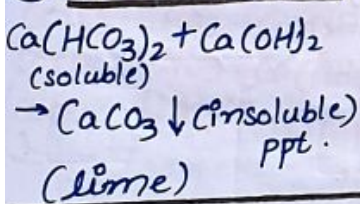 Ca(HCO₃)₂ + Ca(OH)₂
(soluble)
→ CaCO₃ ↓ (insoluble)
ppt.
(lime)